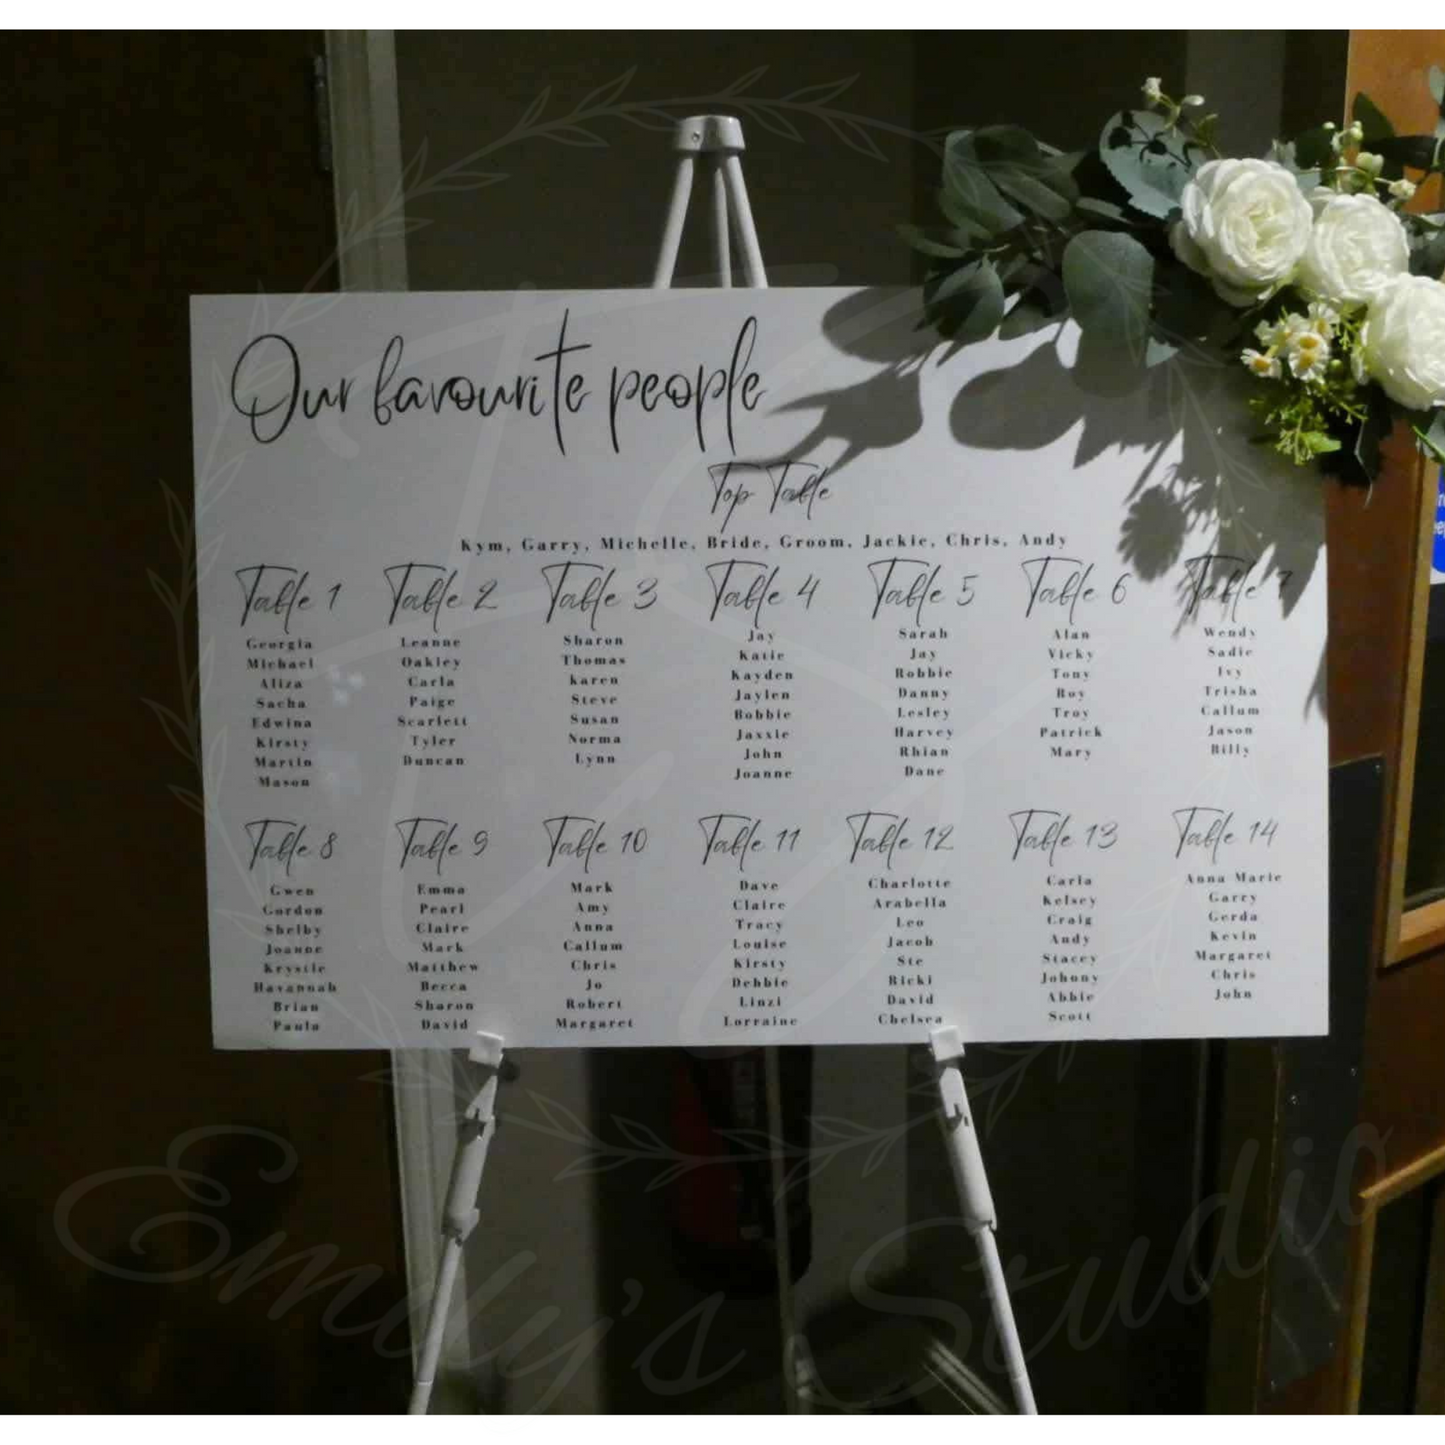 Our favourite people
Top Table
Kym, Garry, Michelle, Bride, Groom, Jackie, Chris, Andy
Table 1
Georgia
Michael
Aliza
Sacha
Edwina
Kirsty
Martin
Mason
Table 2
Leanne
Oakley
Carla
Paige
Scarlett
Tyler
Duncan
Table 3
Sharon
Thomas
karen
Steve
Susan
Norma
Lynn
Table 4
Jay
Katie
Kayden
Jaylen
Bobbie
Jaxxie
John
Joanne
Table 5
Sarah
Jay
Robbie
Danny
Lesley
Harvey
Rhian
Dane
Table 6
Alan
Vicky
Tony
Roy
Troy
Patrick
Mary
Table 7
Wendy
Sadie
Ivy
Trisha
Callum
Jason
Billy
Table 8
Gwen
Gordon
Shelby
Joanne
Krystle
Havannah
Brian
Paula
Table 9
Emma
Pearl
Claire
Mark
Matthew
Becca
Sharon
David
Table 10
Mark
Amy
Anna
Callum
Chris
Jo
Robert
Margaret
Table 11
Dave
Claire
Tracy
Louise
Kirsty
Debbie
Linzi
Lorraine
Table 12
Charlotte
Arabella
Leo
Jacob
Ste
Ricki
David
Chelsea
Table 13
Carla
Kelsey
Craig
Andy
Stacey
Johnny
Abbie
Scott
Table 14
Anna Marie
Garry
Gerda
Kevin
Margaret
Chris
John
Emdy's Studio